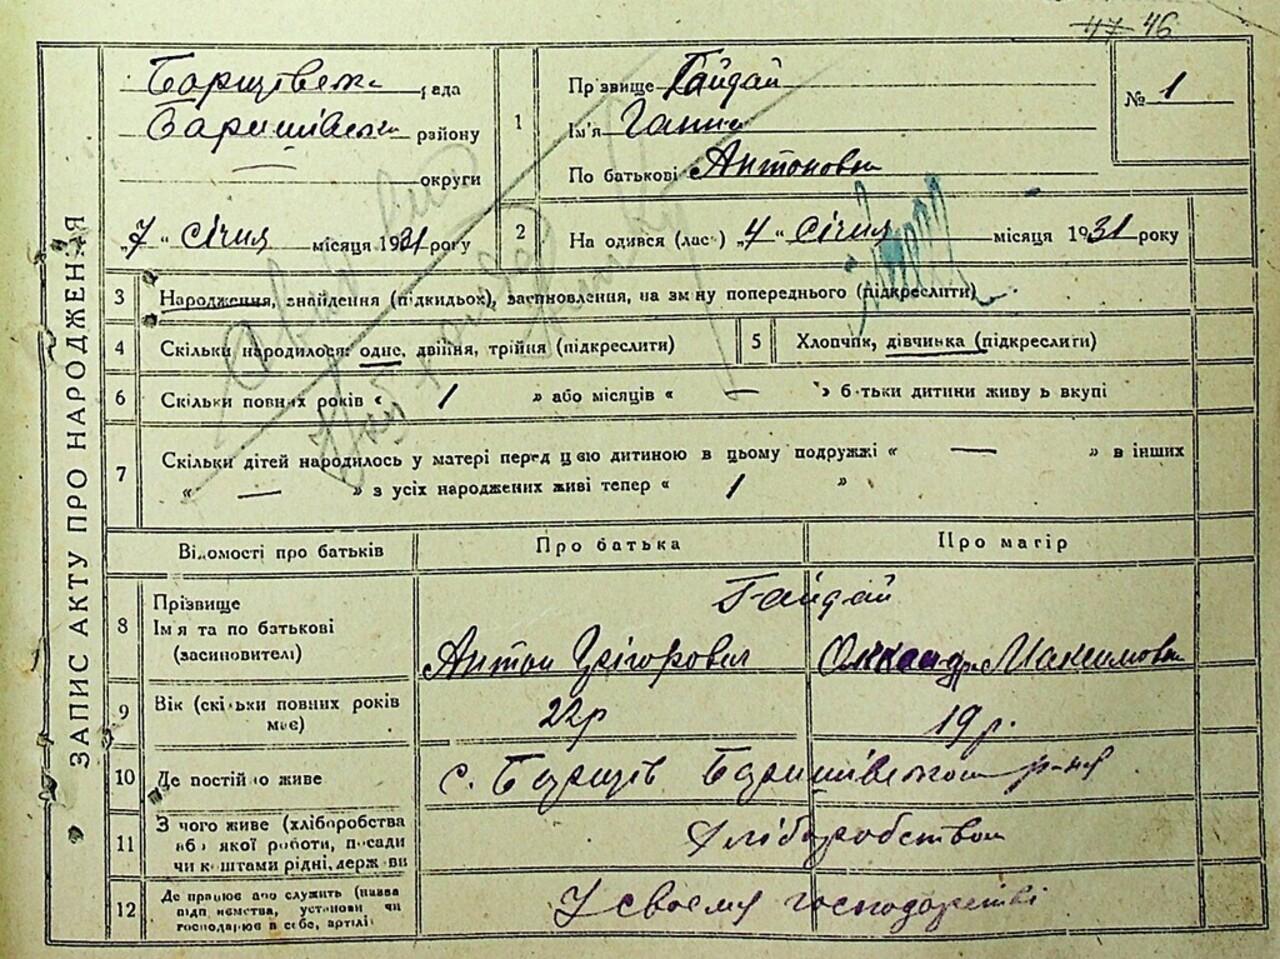 47 46
Борщівська рада
Баришівська району
округи
„7“ січня місяця 1931 року
1
Прізвище Гайдай
Ім'я Ганна
По батькові Антоновна
№ 1
2
На одився (лас) „4“ січня місяця 1931 року
ЗАПИС АКТУ ПРО НАРОДЖЕННЯ
3 Народження, знайдення (підкидьох), засиновлення, на зміну попереднього (підкреслити)
4 Скільки народилося: одне, двійня, трійня (підкреслити)
5 Хлопчик, дівчинка (підкреслити)
6 Скільки повних років « 1 » або місяців « — » батьки дитини живуть вкупі
7 Скільки дітей народилось у матері перед цією дитиною в цьому подружжі « — » в інших
« — » з усіх народжених живі тепер « 1 »
Відомості про батьків
Про батька
Про матір
8 Прізвище
Ім'я та по батькові
(засиновителі)
Гайдай
Антон Грігорович
Олександра Максимовна
9 Вік (скільки повних років
має)
22р
19 р.
10 Де постійно живе
с. Борщів Баришівського р-ну
11 З чого живе (хліборобства
або якої роботи, посади
чи коштами рідні, держави
Хліборобством
12 Де працює або служить (назва
підприємства, установи чи
господарює в себе, артілі
У своєму господарстві